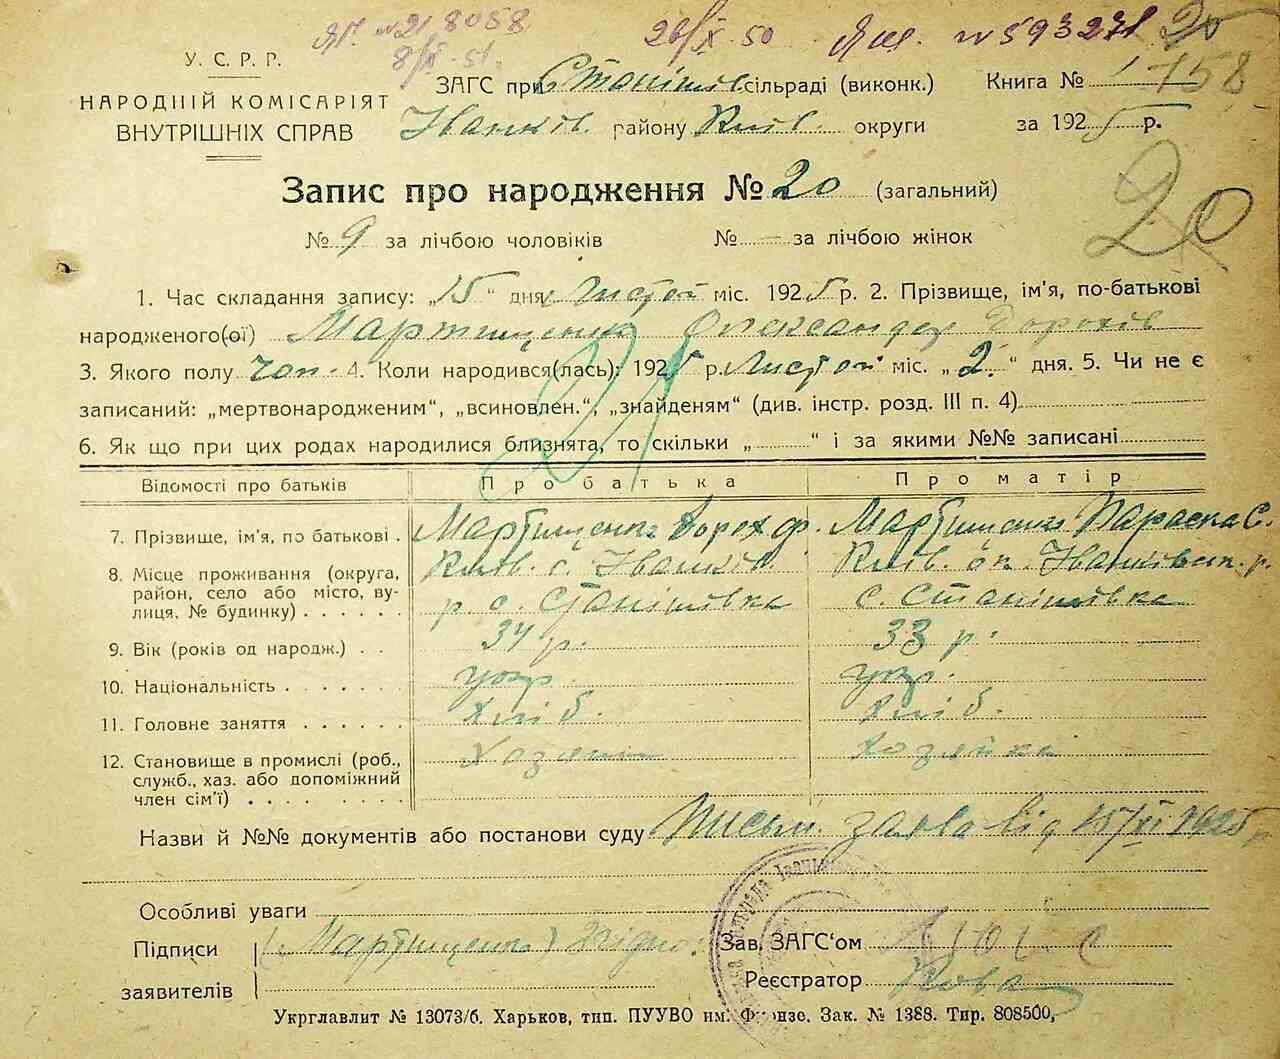 ЯГ. №21 8058 26/X-50 ЯШ. №593271 20
8/X-51.
У. С. Р. Р.
НАРОДНІЙ КОМІСАРІЯТ
ВНУТРІШНІХ СПРАВ
ЗАГС при Станішів сільраді (виконк.) Книга № 1758
Іванків. району Київ. округи за 1925 р.
Запис про народження № 20 (загальний)
20
№ 9 за лічбою чоловіків № — за лічбою жінок
1. Час складання запису: „15“ дня Листоп міс. 1925 р. 2. Прізвище, ім'я, по-батькові
народженого(ої) Мартищенко Олександр Дорохів
3. Якого полу чол. 4. Коли народився(лась): 1925 р. Листоп міс. „2.“ дня. 5. Чи не є
записаний: „мертвонародженим“, „всиновлен.“, „знайденям“ (див. інстр. розд. III п. 4)
6. Як що при цих родах народилися близнята, то скільки „ “ і за якими №№ записані
21
Відомості про батьків Про батька Про матір
7. Прізвище, ім'я, по батькові . Мартищенко Дорох Ф. Мартищенко Параска С.
8. Місце проживання (округа, Київ. о. Іванків. Київ. ок. Іванківск. р.
район, село або місто, ву-
лиця, № будинку) . . . . . . р. с. Станішівка с. Станішівка
9. Вік (років од народж.) . . 34 р. 33 р.
10. Національність . . . . . . . укр. укр.
11. Головне заняття . . . . . . хліб. хліб.
12. Становище в промислі (роб., Хозяин хозяйка
служб., хаз. або допоміжний
член сім'ї) . . . . . . . .
Назви й №№ документів або постанови суду Письм. заява від 15/XI 1925 р
Особливі уваги
Підписи (Мартищенко) Згідно: Зав. ЗАГС'ом
заявителів Реєстратор Кова
Укрглавлит № 13073/б. Харьков, тип. ПУУВО им. Фрунзе. Зак. № 1388. Тир. 808500,